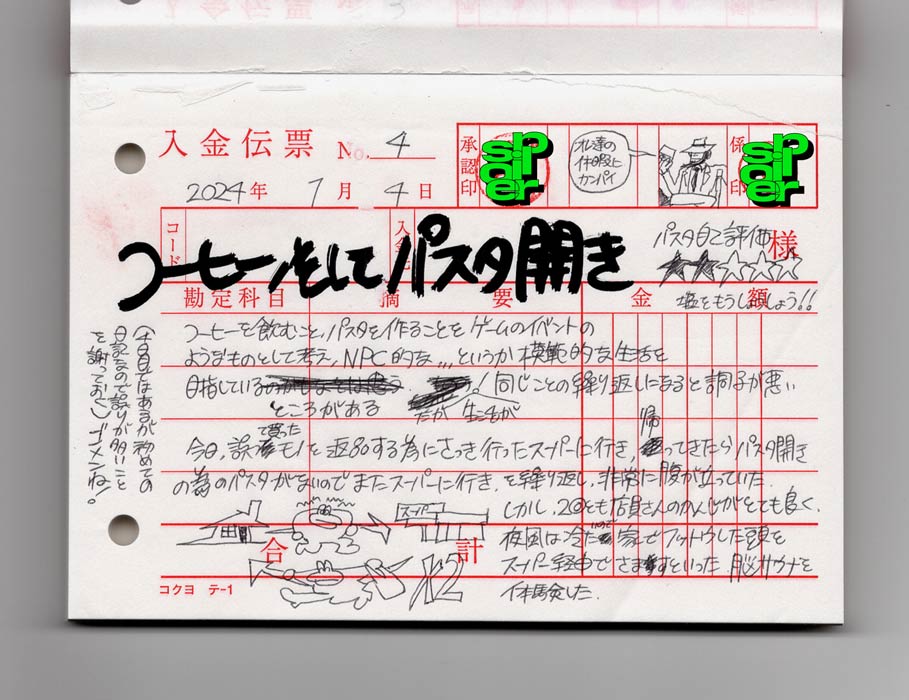 入金伝票 No. 4
承認印
spiral
オレ達の
休暇に
カンパイ
係印
spiral
2024年 1月 4日
コード
入金先
パスタ自己評価
様
★★☆☆☆
塩をもうしょう!!
コーヒーそしてパスタ開き
勘定科目 摘要 金額
コーヒーを飲むこと、パスタを作ることをゲームのイベントの
ようなものとして考え、NPC的な…というか模範的な生活を
目指している
ところがある
! 同じことの繰り返しになると調子が悪い
だが 生ニモが
今日、誤
で買った
モノを返品する為にさっき行ったスーパーに行き、
帰
ってきたらパスタ開き
の為のパスタがないのでまたスーパーに行き、を繰り返し、非常に腹が立っていた。
しかし、2回とも店員さんのかんじがとても良く、
夜風は冷た
いので
家でフットウした頭を
スーパー経由でさますといった脳サウナを
体験した。
(4日目ではあるが初めての
日記なので誤りが多いこと
を謝っておく)ゴメンね!。
スーパー
×2
合計
コクヨ テ-1